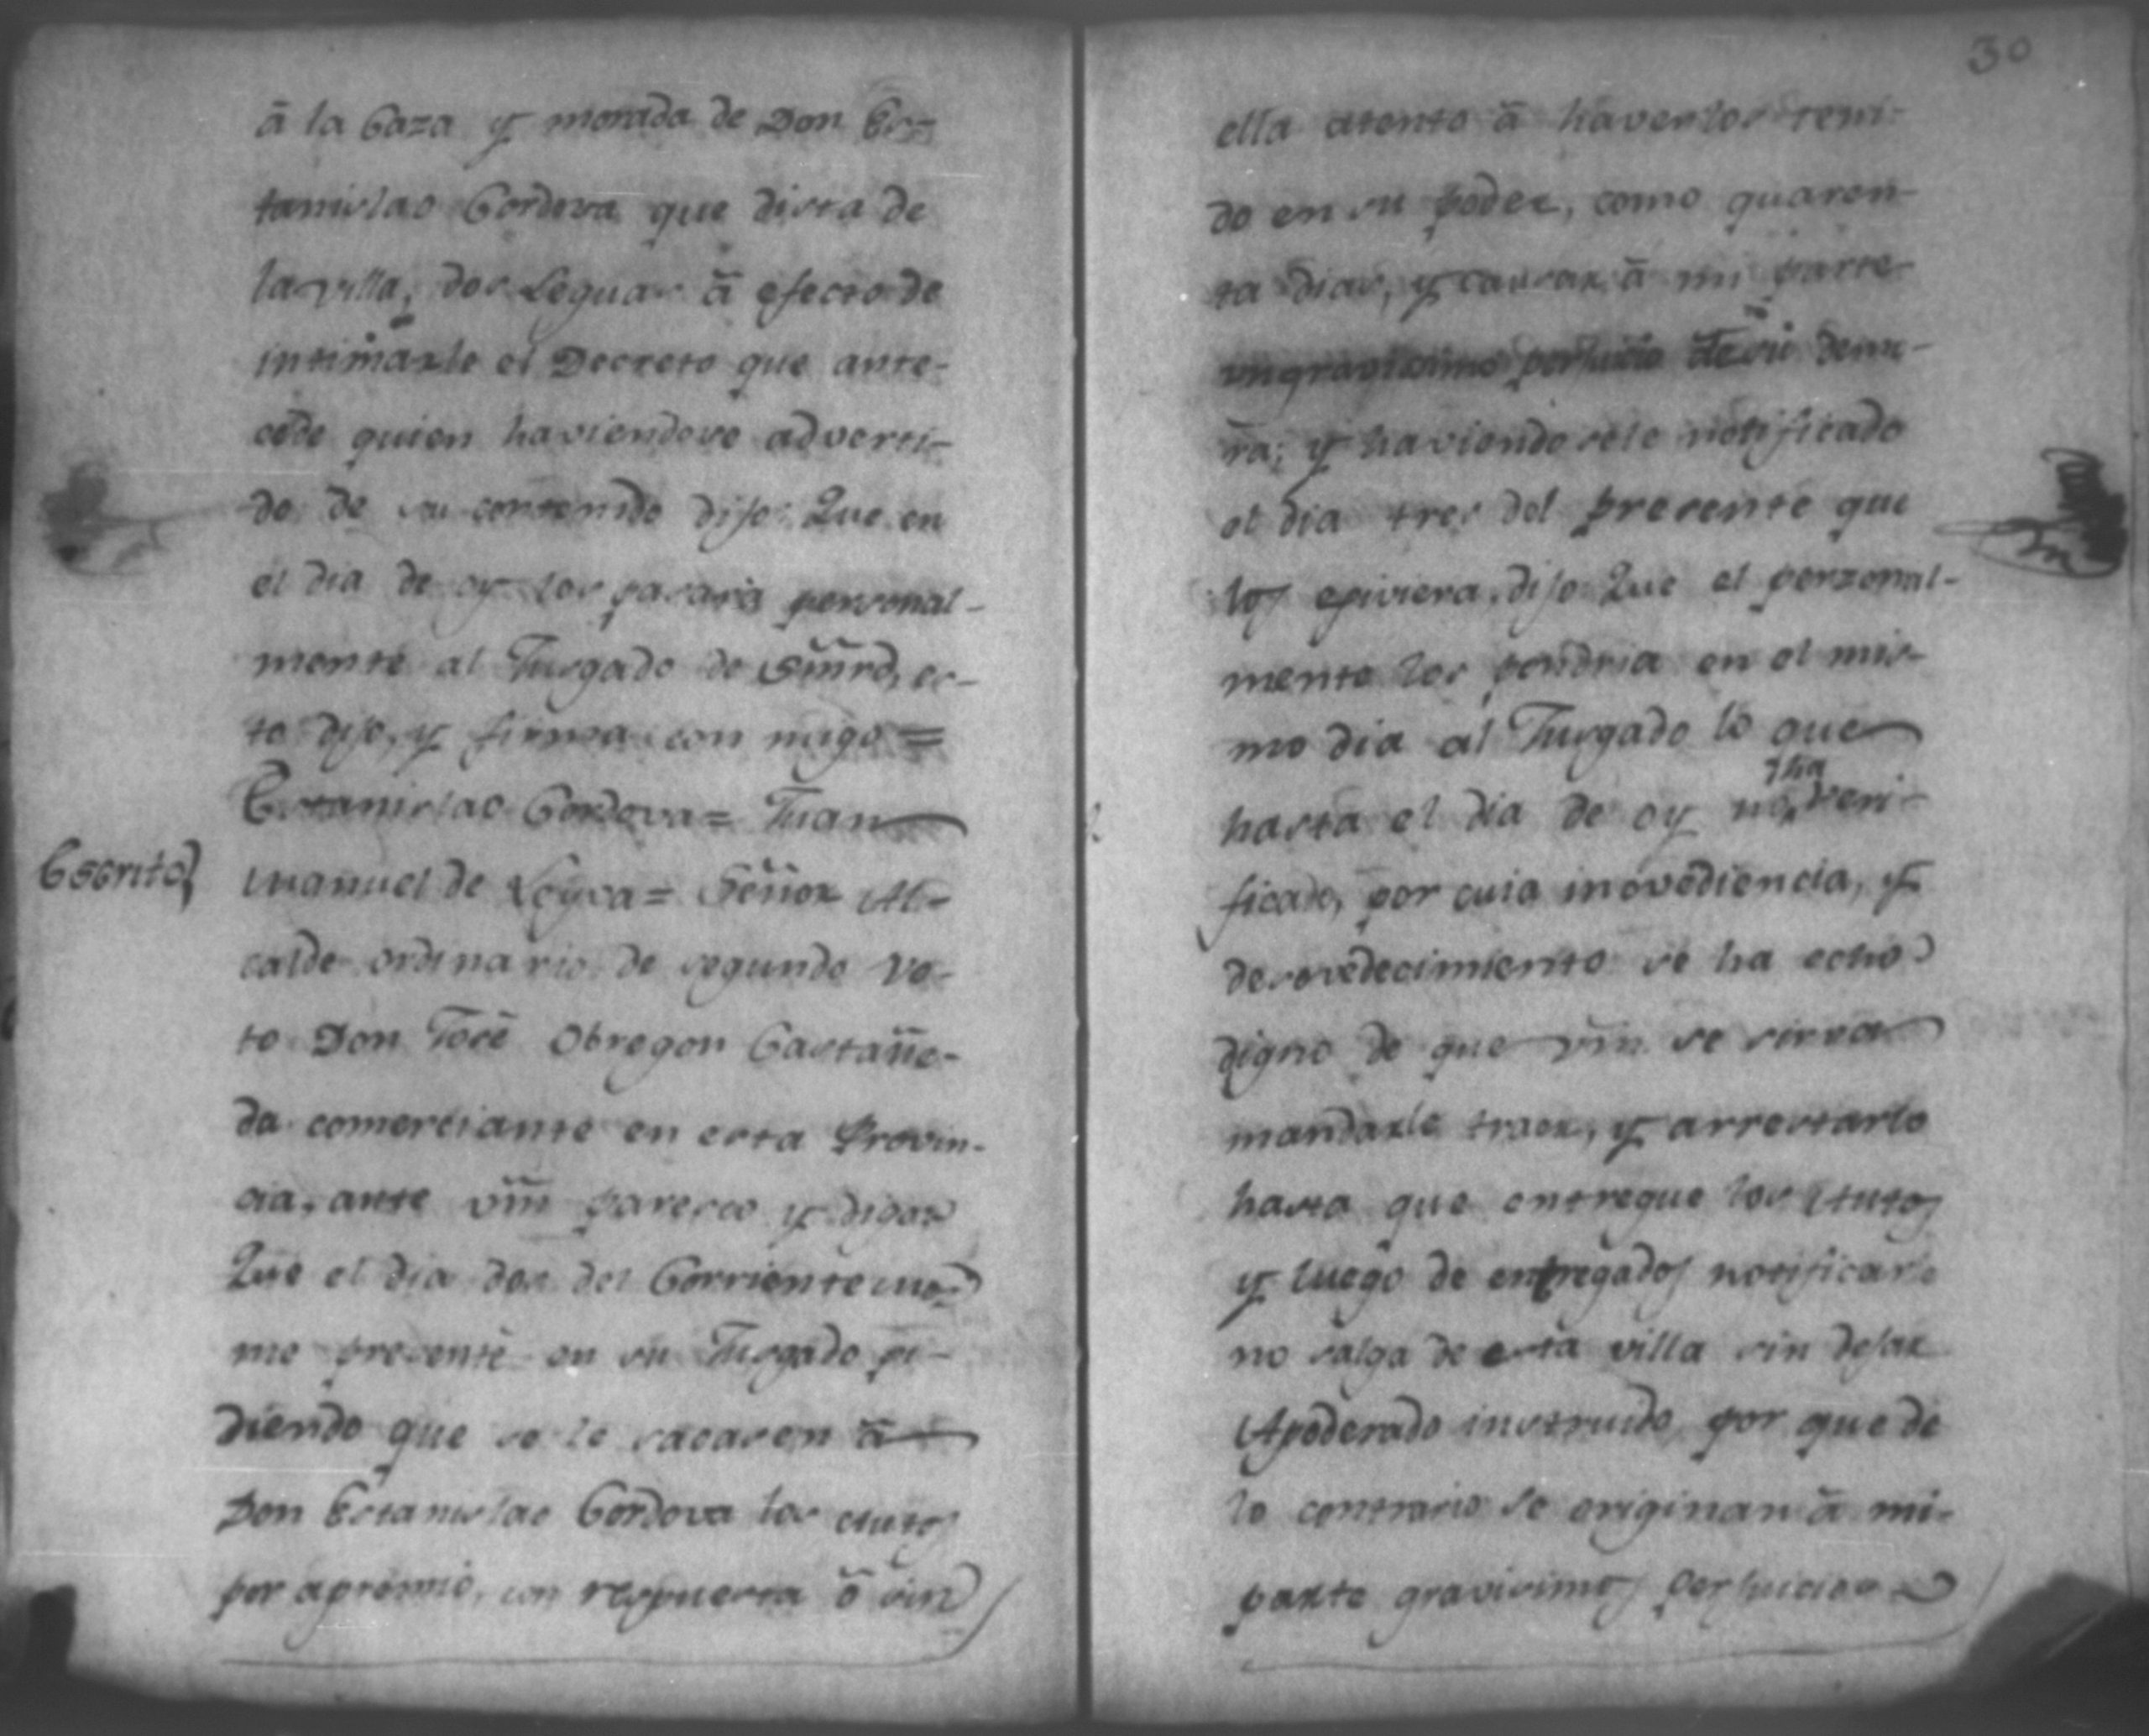 à la Caza y morada de Don Es=
tanislao Cordova que dista de
la villa, dos Leguas à efecto de
intimarle el Decreto que ante-
cede quien haviendose adverti-
do de su contenido dijo: Que en
el dia de oy los pasaria personal-
mente al Jusgado de Smrd, es-
to dijo, y firma con migo =
Estanislao Cordova = Juan
Escrito
Manuel de Leyva = Señor Al-
calde ordinario de segundo Vo-
to Don José Obregon Castañe-
da comerciante en esta Provin-
cia, ante Vm̃ paresco y digo:
Que el dia dos del Corriente mes
me presenté en su Jusgado pi-
diendo que se le sacasen à
Don Estanislao Cordova los Autos
por apremio, con respuesta ò sin
30
ella atento à haverlos teni-
do en su poder, como quaren-
ta dias, y causar à mi parte
un gravissimo perjuicio demo-
ra; y haviendosele notificado
el dia tres del presente que
los eqiviera, dijo Que el perzonal-
mente los pondria en el mis-
mo dia al Jusgado lo que
hasta el dia de oy no ha veri-
ficado, por cuia inovediencia, y
desovedecimiento se ha echo
digno de que Vm̃ se sirva
mandarle traer, y arrestarlo
hasta que entregue los Autos
y luego de entregados notificarle
no salga de esta villa sin dejar
Apoderado instruido por que de
lo contrario se originan à mi
parte gravisimos perjuicios